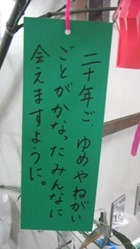 二十年ご、ゆめやねがい
ごとがかなったみんなに
会えますように。